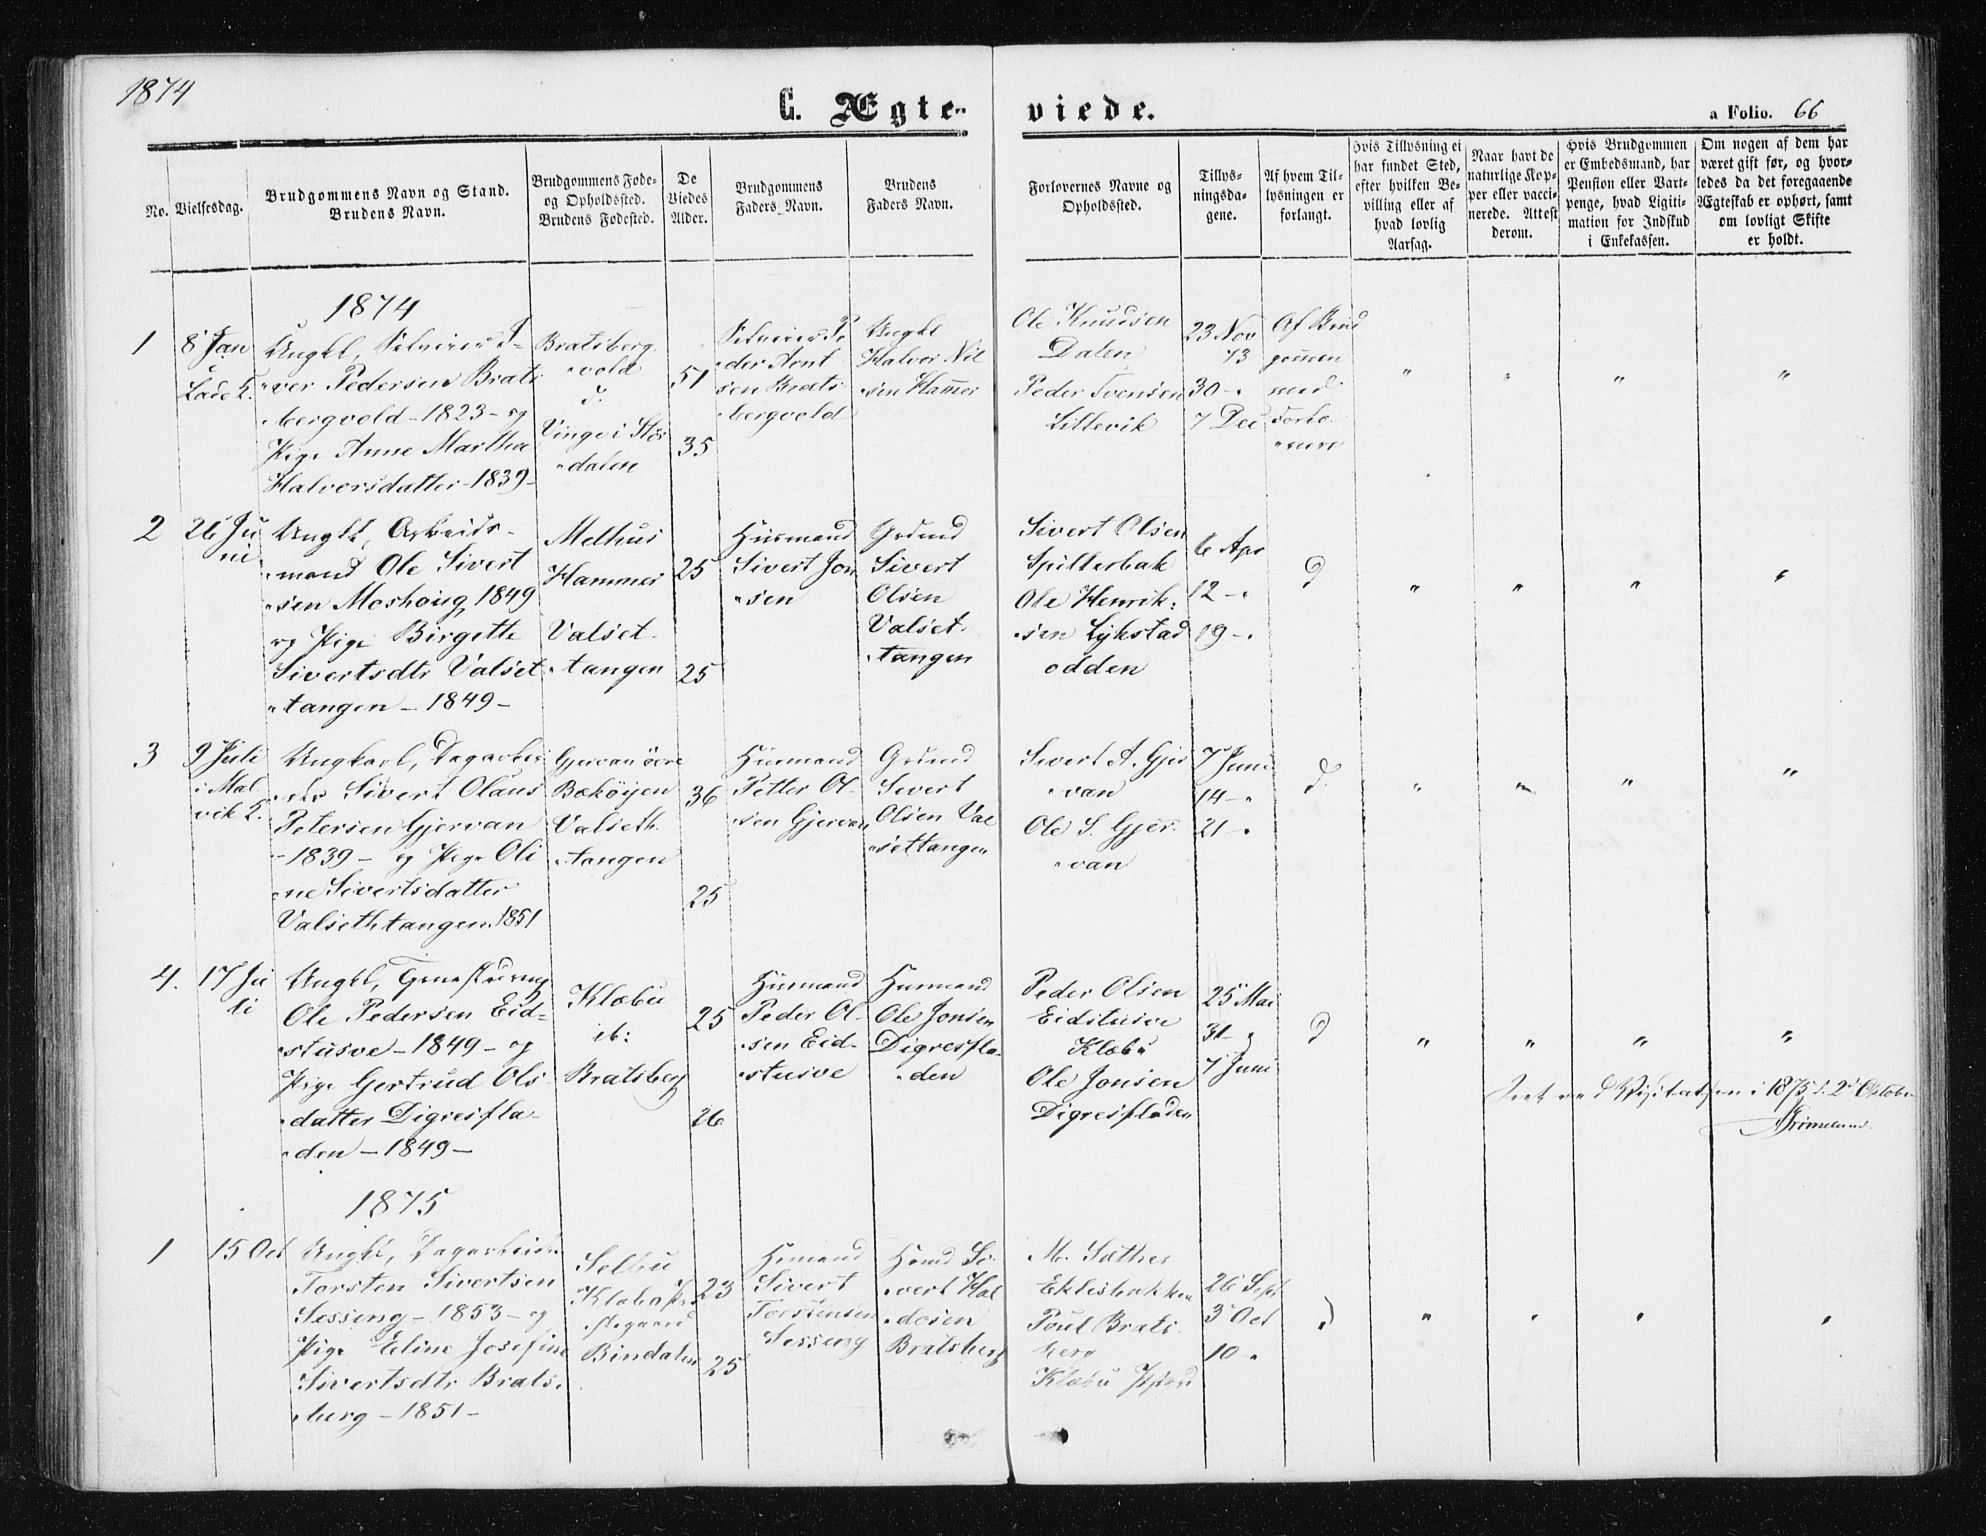 1874
C. Ægte-
viede.
a Folio. 66
No.
Vielsesdag.
Brudgommens Navn og Stand.
Brudens Navn.
Brudgommens Føde-
og Opholdssted.
Brudens Fødested.
De
Viedes
Alder.
Brudgommens
Faders Navn.
Brudens
Faders Navn.
Forlovernes Navne og
Opholdssted.
Tillys-
ningsda-
gene.
Af hvem Til-
lysningen er
forlangt.
Hvis Tillysning ei
har fundet Sted,
efter hvilken Be-
villing eller af
hvad lovlig
Aarsag.
Naar havt de
naturlige Kop-
per eller vacci-
nerede. Attest
derom.
Hvis Brudgommen
er Embedsmand, har
Pension eller Vart-
penge, hvad Ligiti-
mation for Indskud
i Enkekassen.
Om nogen af dem har
været gift før, og hvor-
ledes da det foregaaende
Ægteskab er ophørt, samt
om lovligt Skifte
er holdt.
1874
1
8 Jan
Lade K.
Ungkl,
ver Pedersen Brats
bergvold - 1823 - og
Pige Anne Martha
Halvorsdatter - 1839 -
Bratsberg
vold
d.
Vinge i Stør
dalen
51
35
der Arnt
sen Brats
bergvold
Ungkl
Halvor Nil
sen Hammer
Ole Knudsen
Dalen
Peder Svensen
Lillevik
23 Nov
73
30 - "
7 Dec
Af Brud
gommen
med
Forlo
verne
" " " "
2
26 Ju
ni
Ungkl, Arbeids-
mand Ole Sivert
sen Moshaug 1849
og Pige Birgitte
Sivertsdtr Valset
tangen - 1849 -
Melhus
Hammer
Valset
tangen
25
25
Husmand
Sivert Jon
sen
Grdmd
Sivert
Olsen
Valset
tangen
Sivert Olsen
Spillerbak
Ole Henrik:
sen Lykstad
odden
6 Apr
12 - "
19 - "
d
" " " "
3
9 Juli
i Mal
vik K.
Ungkarl, Dagarbei
der Sivert Olaus
Petersen Gjervan
- 1839 - og Pige Oli
ne Sivertsdatter
Valsethtangen 1851
Gjervan øvre
Bakøien
Valseth
tangen
36
25
Husmand
Petter Ol
sen Gjervan
Grdmd
Sivert
Olsen Val
settangen
Sivert A. Gjer
van
Ole S. Gjer
van
7 Juni
14 - "
21 - "
d.
" " " "
4.
17 Ju
li
Ungkl,
Ole Pedersen Eid-
stusve - 1849 - og
Pige Gertrud Ols
datter Digresfla-
den - 1849 -
Klæbu
ib:
Bratsberg
25
26
Husmand
Peder Ol-
sen Eid-
stusve
Husmand
Ole Jonsen
Digresfla-
den
Peder Olsen
Eidstusve
Klæbu
Ole Jonsen
Digresfladen
25 Mai
31 - "
7 Juni
d
" " " "
Seet ved Visitatsen i 1875 d. 2 October
Grimelund.
1875
1
15 Oct
Ungkl, Dagarbeider
Torsten Sivertsen
Sessing - 1853 - og
Pige Eline Josefine
Sivertsdtr Brats
berg - 1851 -
Selbu
Klæbo Præ
stegaard
Bindalen
23
25
Husmand
Sivert
Torstensen
Sesseng
Husmd Si
vert Hal
dosen
Bratsberg
M. Sæther
Eklesbakken
Poul Brats
berg
Klæbu
26 Sept
3 Oct
10 "
d
" " " "